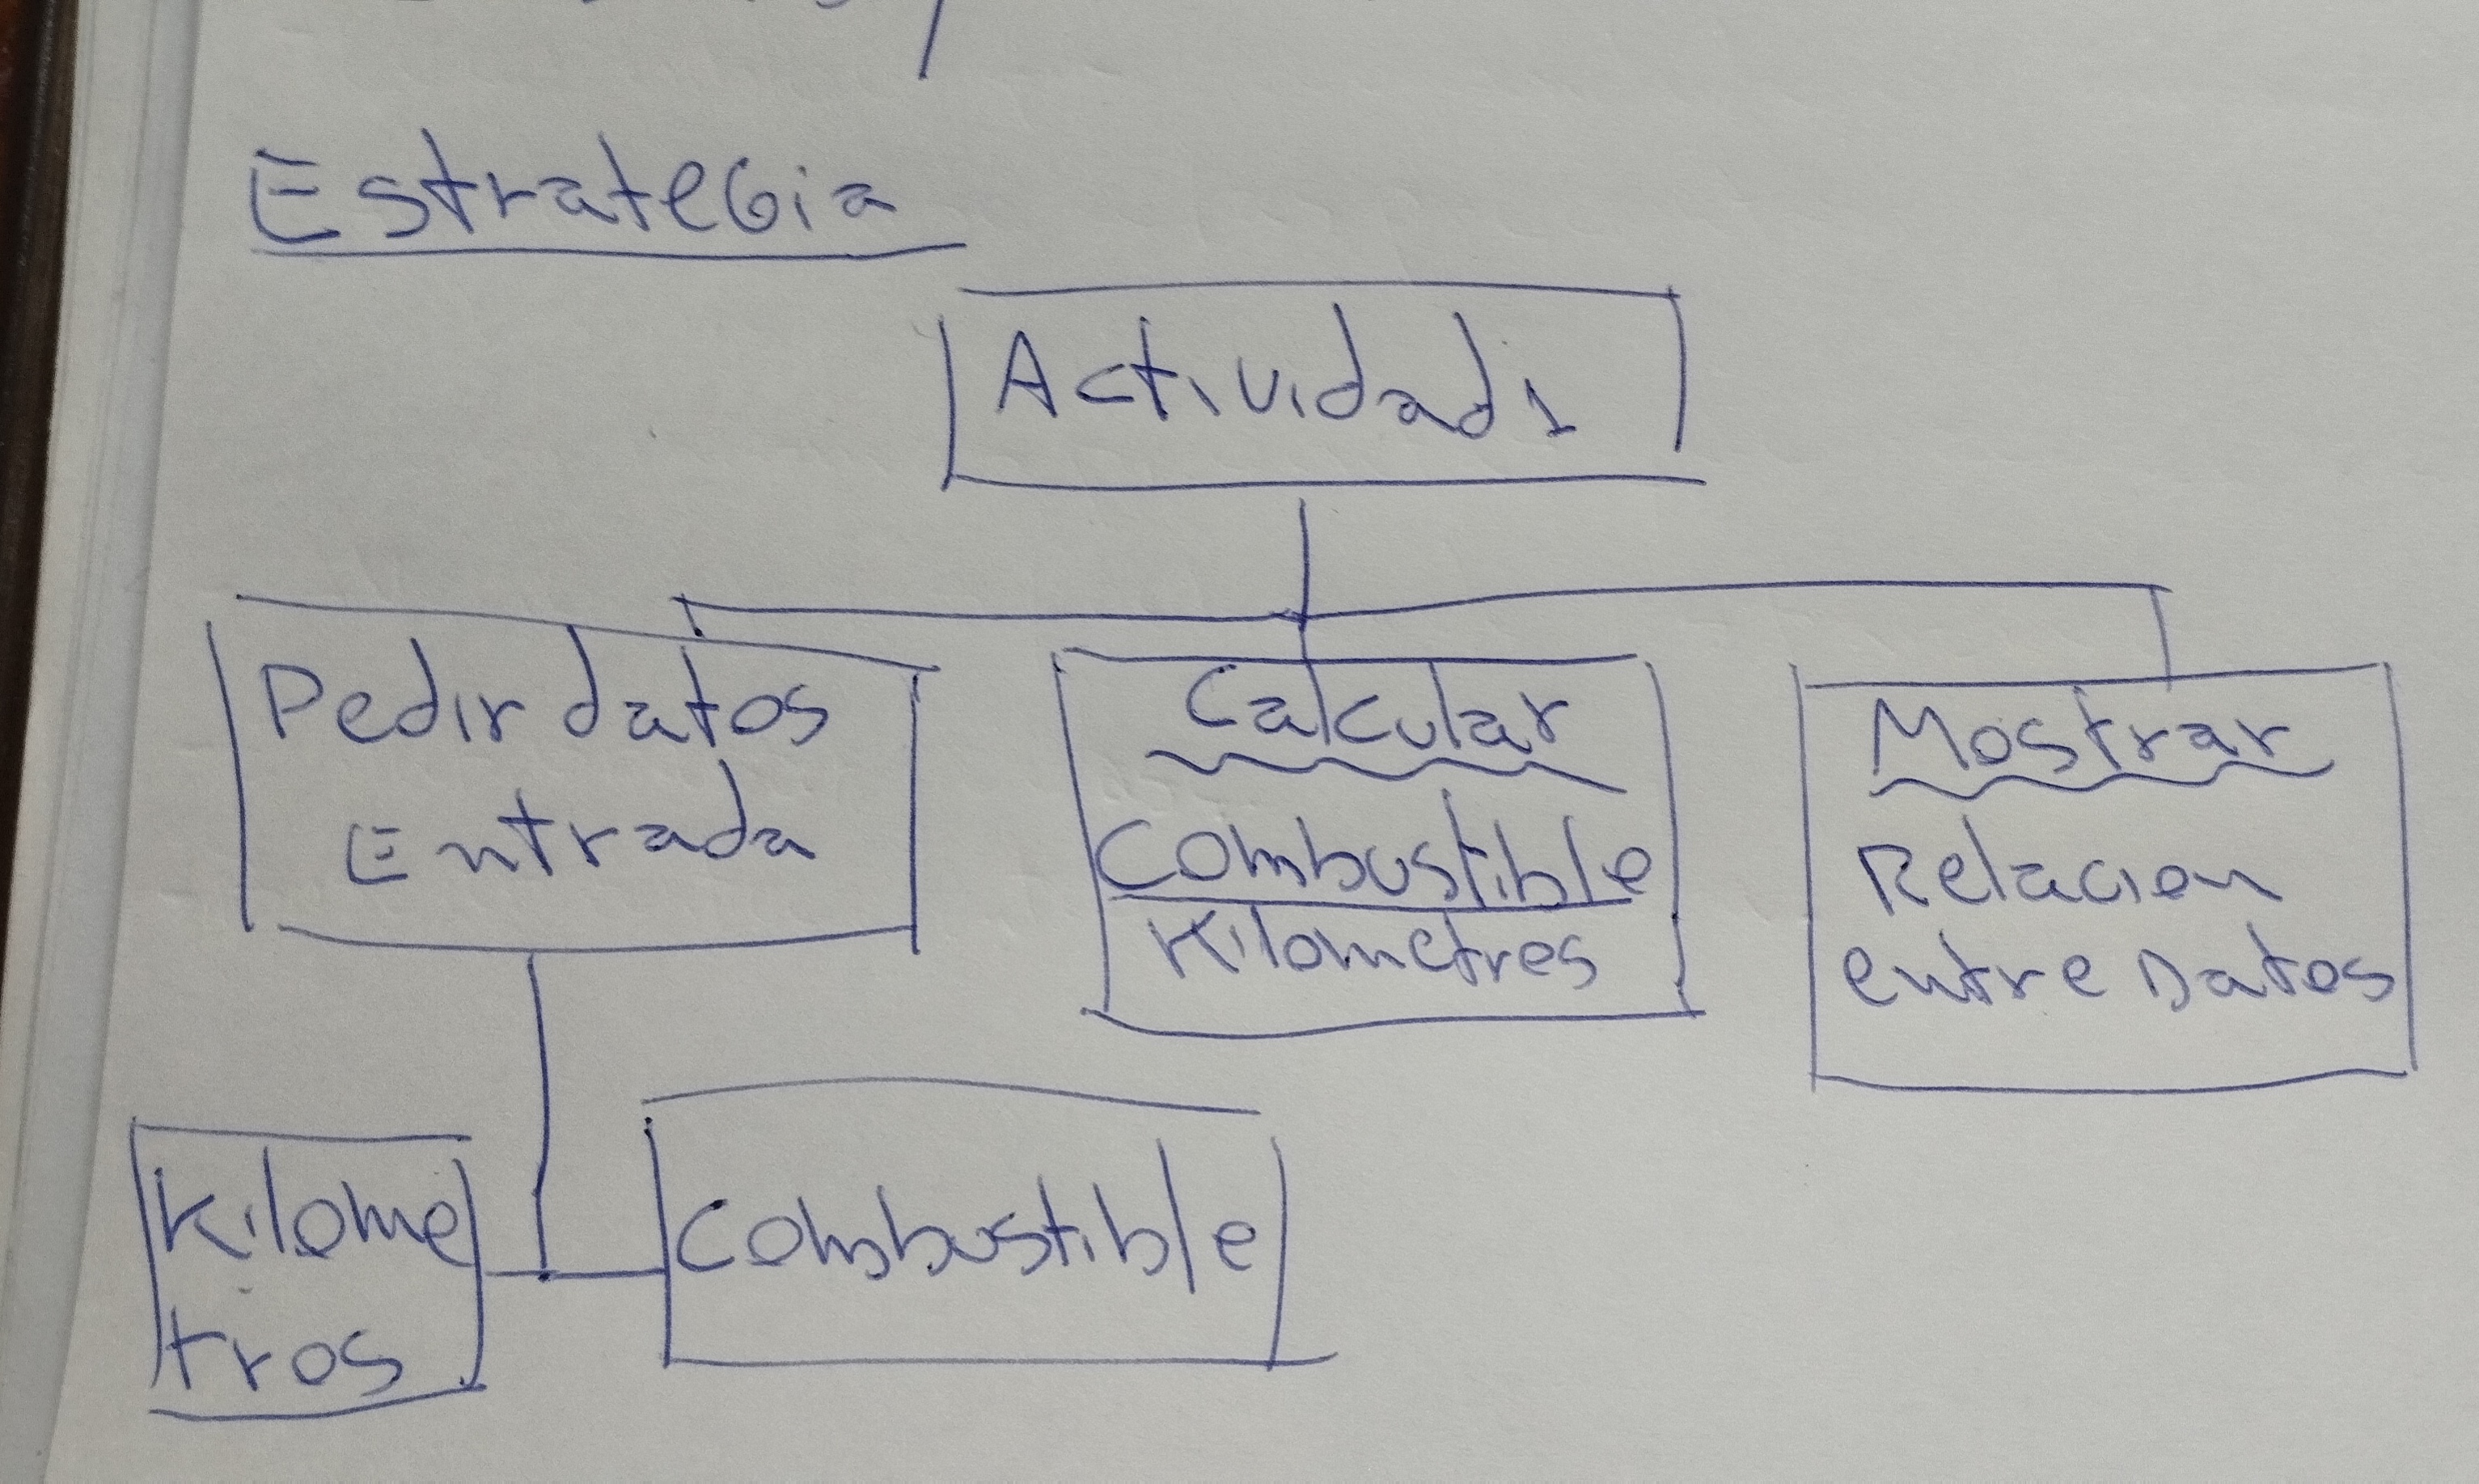 EstrateGia
Actividad 1
Pedir datos
Entrada
Calcular
Combustible
Kilometros
Mostrar
Relacion
entre Datos
Kilome
tros
Combustible